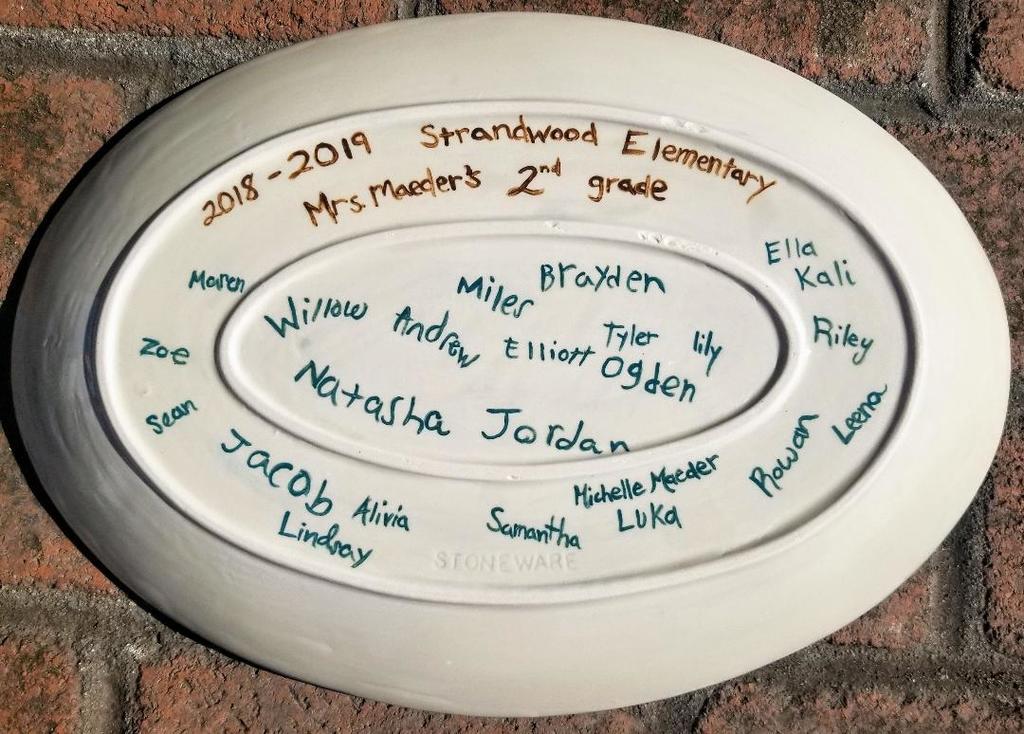 2018-2019 Strandwood Elementary
Mrs. Maeder's 2nd grade
Ella
Kali
Maren
Miles
Brayden
Willow
Andrew
Elliott
Tyler
lily
Riley
Zoe
Ogden
Natasha
Jordan
Sean
Leena
Rowan
Jacob
Alivia
Lindsay
Samantha
Michelle Maeder
LUKa
STONEWARE